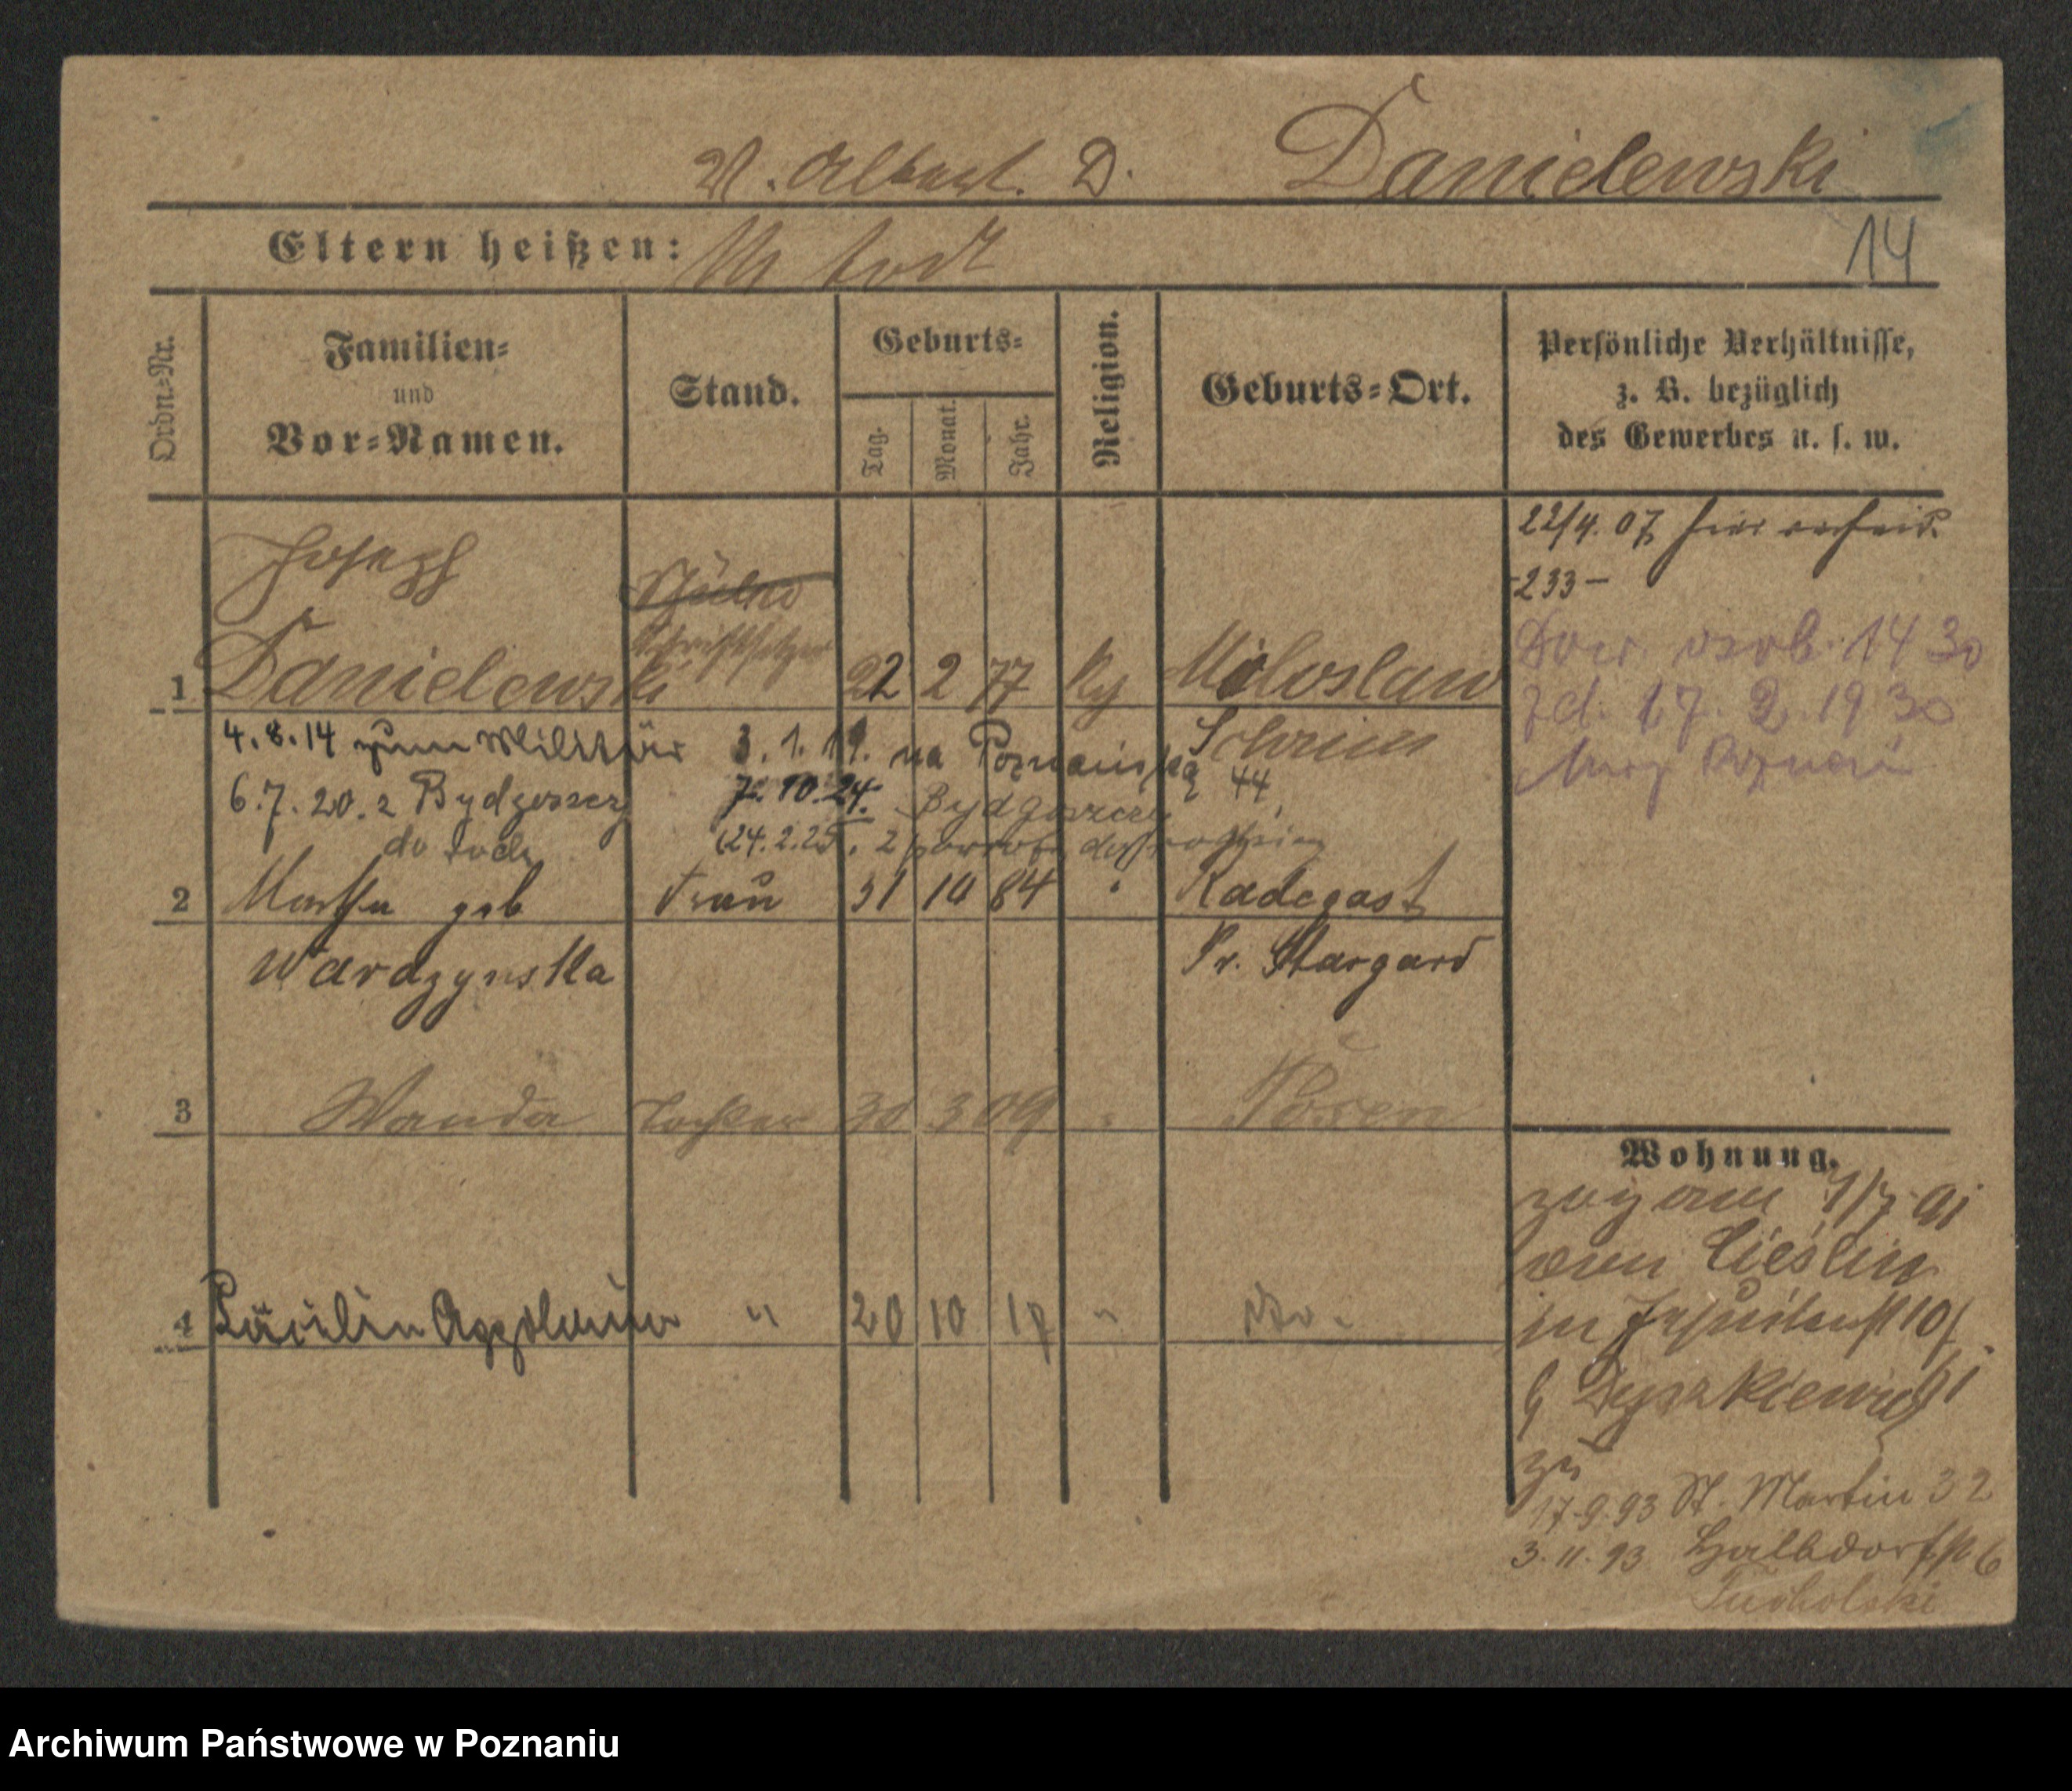 V. Albert. D. Danielewski
Eltern heißen: M todt
14
Ordn.=Nr.
Familien=
und
Vor=Namen.
Stand.
Geburts=
Tag.
Monat.
Jahr.
Religion.
Geburts=Ort.
Persönliche Verhältnisse,
z. B. bezüglich
des Gewerbes u. s. w.
22/4. 07 hier
-233-
Joseph
Schüler
Schriftsetzer
1 Danielewski 22 2 77 Miloslaw
Dow. osob. 14 30
zd. 17. 2. 1930
Poznań
4.8.14 zum Militär 3.1.19. na Poznańską 44
Schrim
6.7.20. z Bydgoszcz 7.10.24. Bydgoszcz
24.2.25. z powrotem
2 Martha geb Frau 31 10 84 " Radegast
Wardzynska Pr. Stargard
3 Wanda Tochter 30 3 09 " Posen
4 Cäcilie Apolonia " 20 10 " do.
Wohnung.
zog am
in Jesuitenst 10
zu
17.9.93 St. Martin 32
3.11.93 Halbdorfst 6